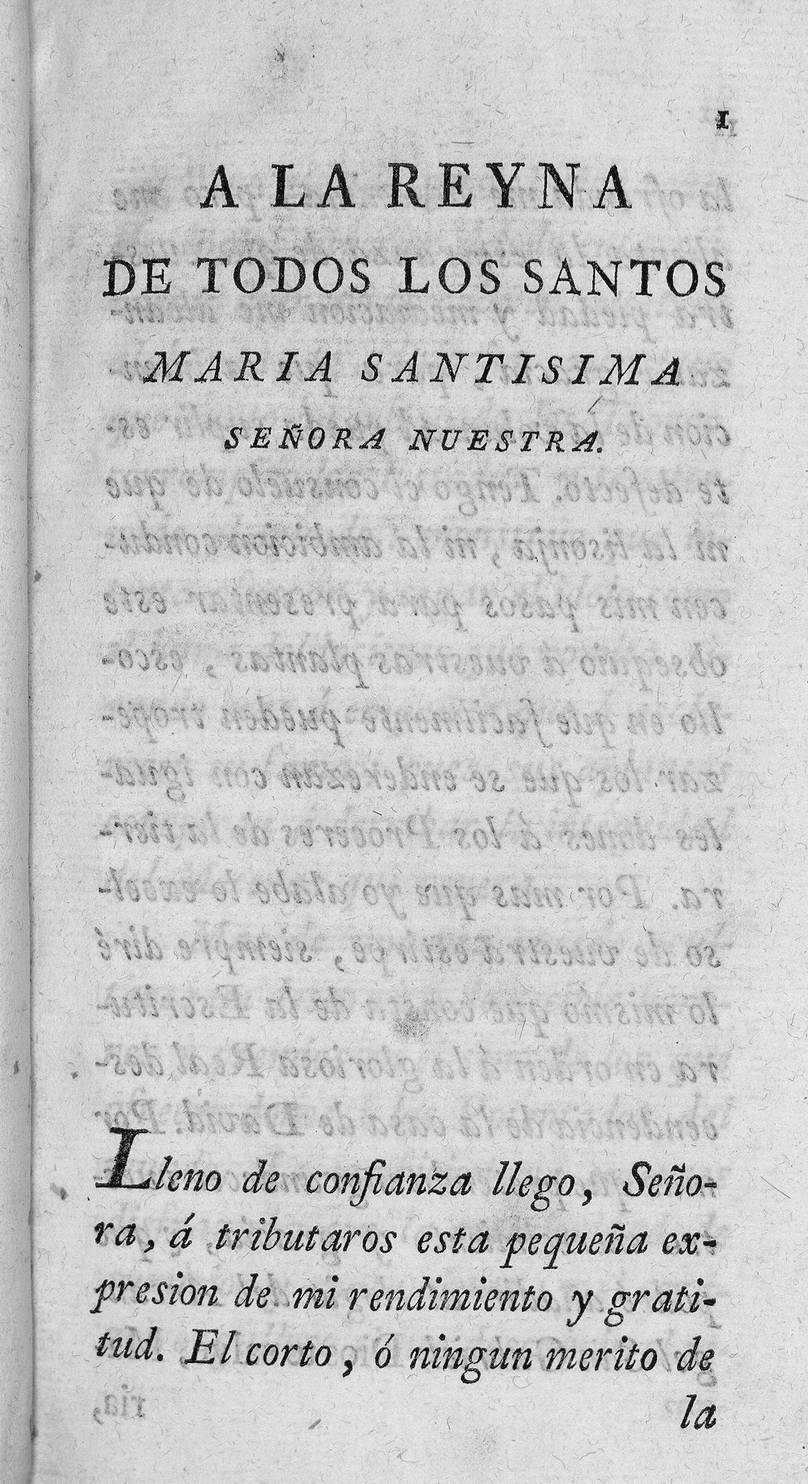 1
A LA REYNA
DE TODOS LOS SANTOS
MARIA SANTISIMA
SEÑORA NUESTRA.
Lleno de confianza llego, Seño-
ra, á tributaros esta pequeña ex-
presion de mi rendimiento y grati-
tud. El corto, ó ningun merito de
la